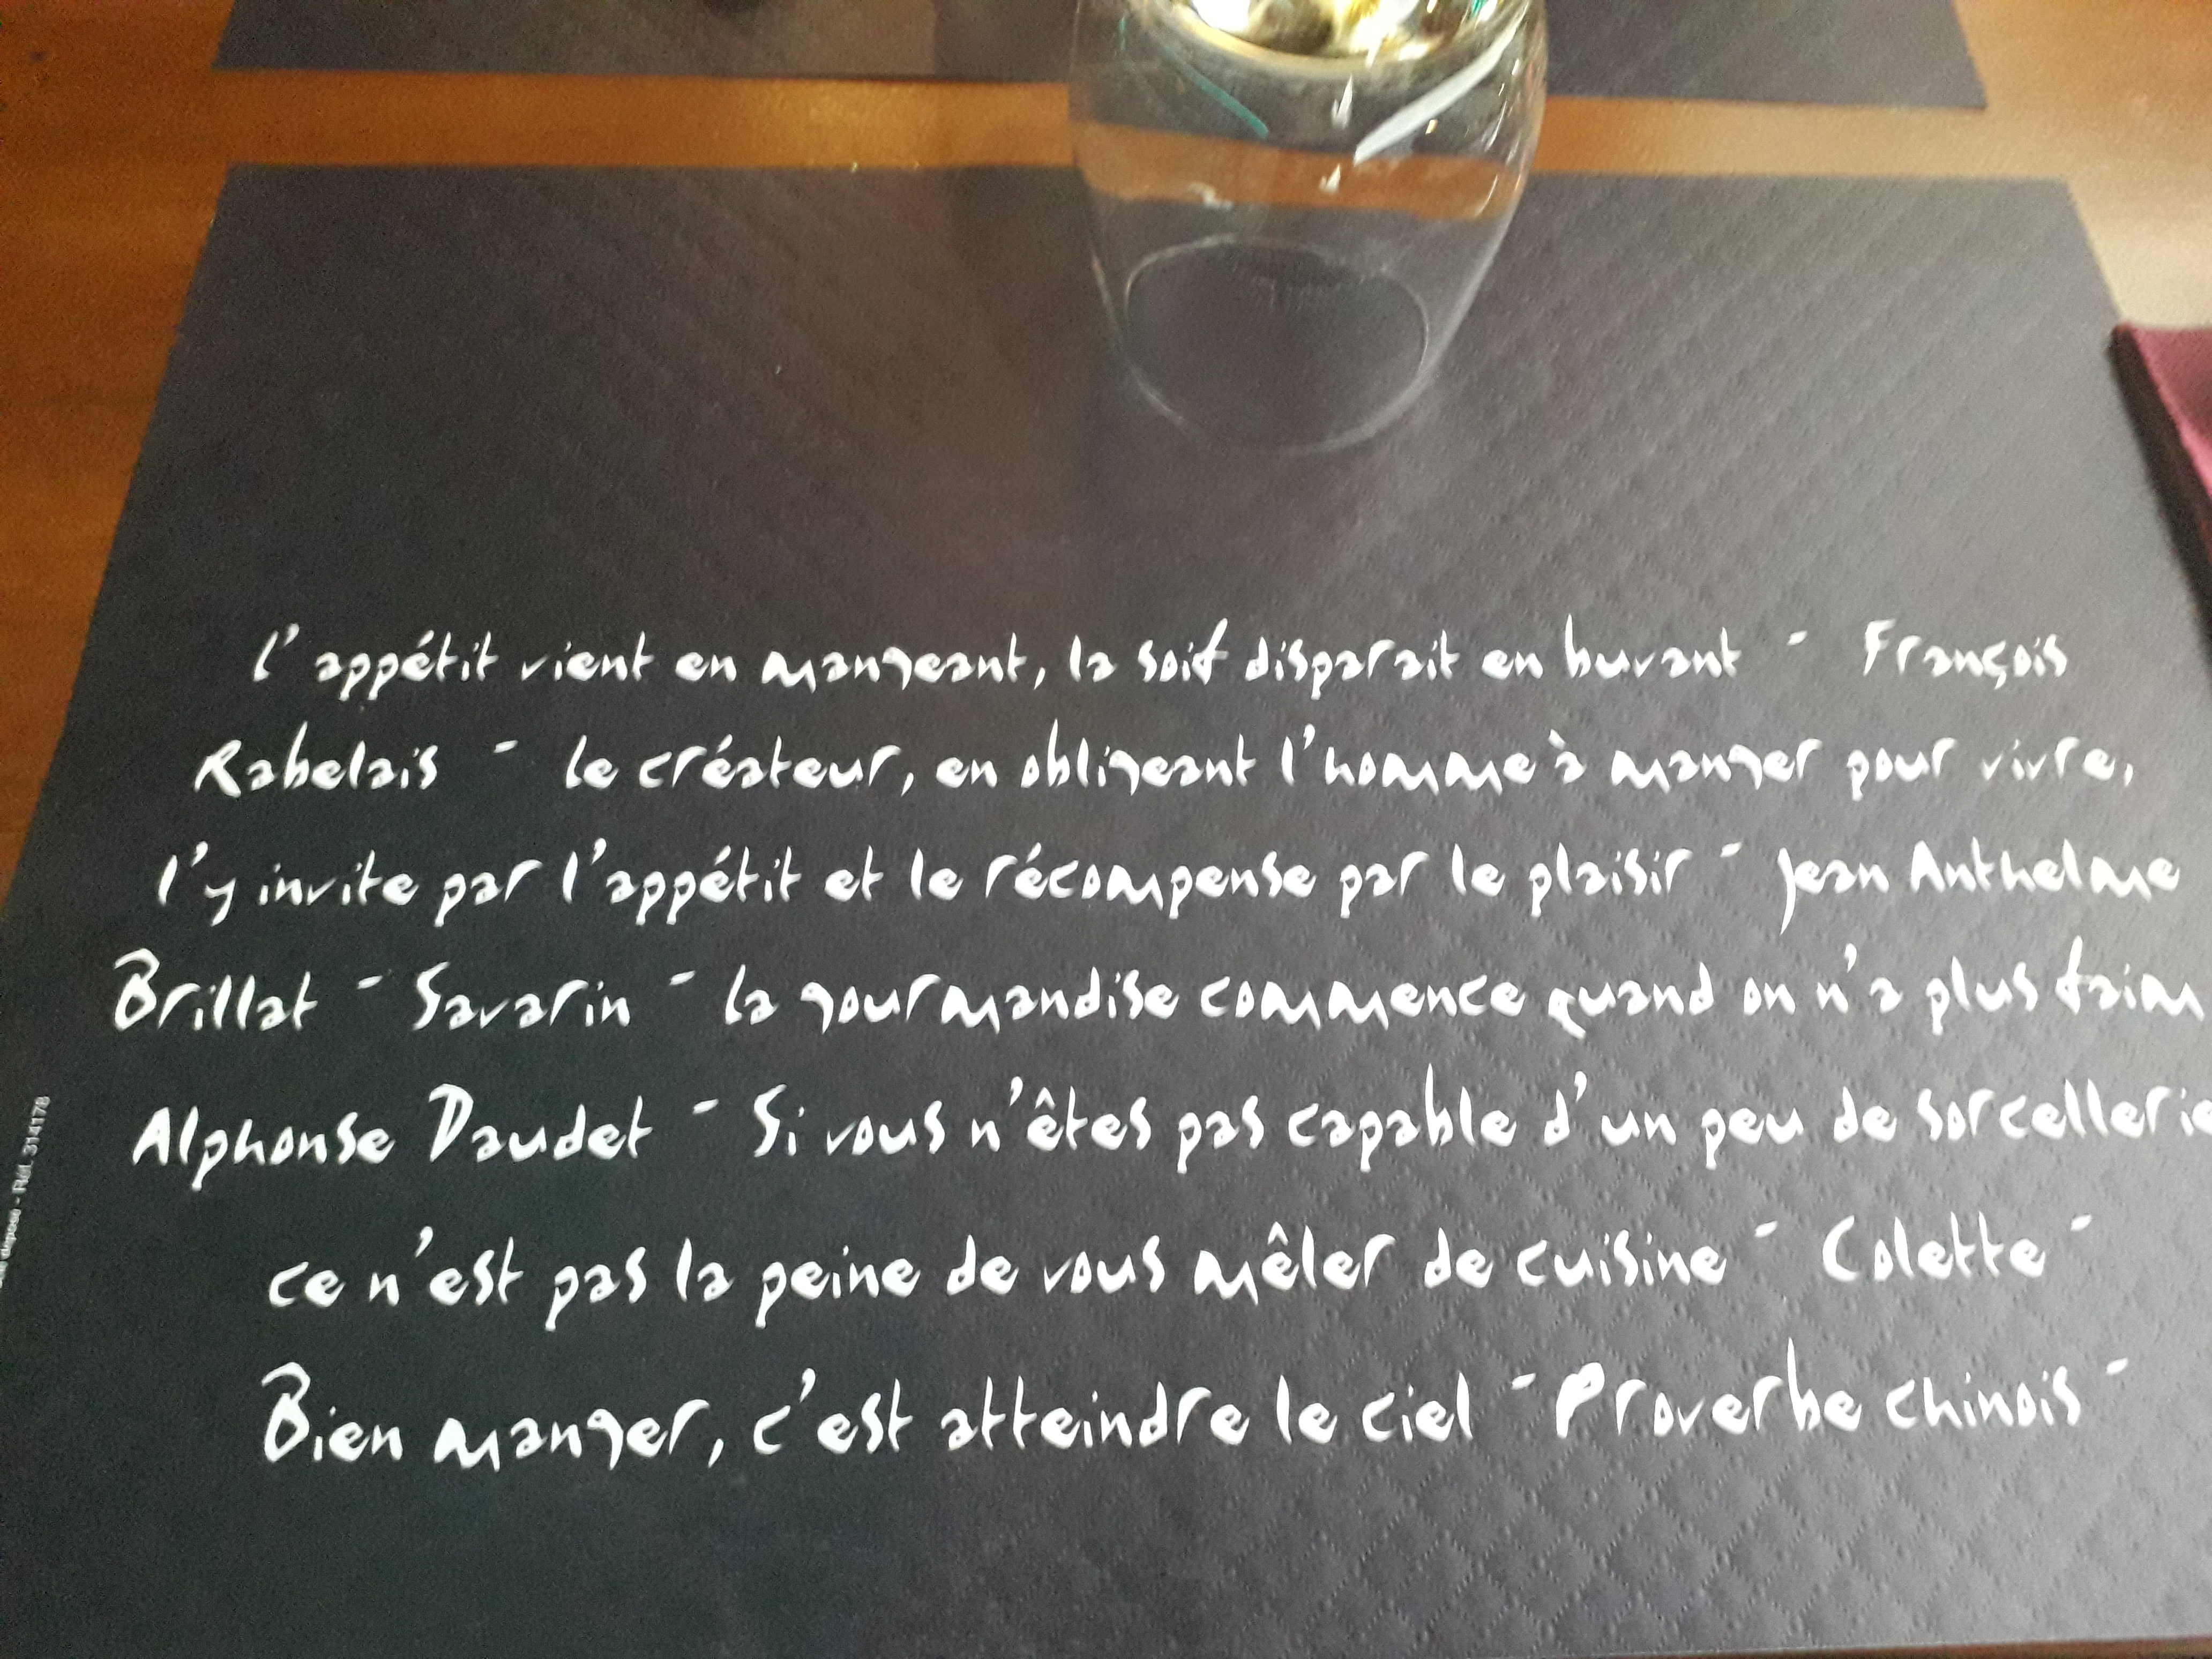 l'appétit vient en mangeant, la soif disparait en buvant - François
Rabelais - le créateur, en obligeant l'homme à manger pour vivre,
l'y invite par l'appétit et le récompense par le plaisir - Jean Anthelme
Brillat - Savarin - la gourmandise commence quand on n'a plus faim
Alphonse Daudet - Si vous n'êtes pas capable d'un peu de sorcellerie
ce n'est pas la peine de vous mêler de cuisine - Colette -
Bien manger, c'est atteindre le ciel - Proverbe chinois -
déposé - Réf. 314178